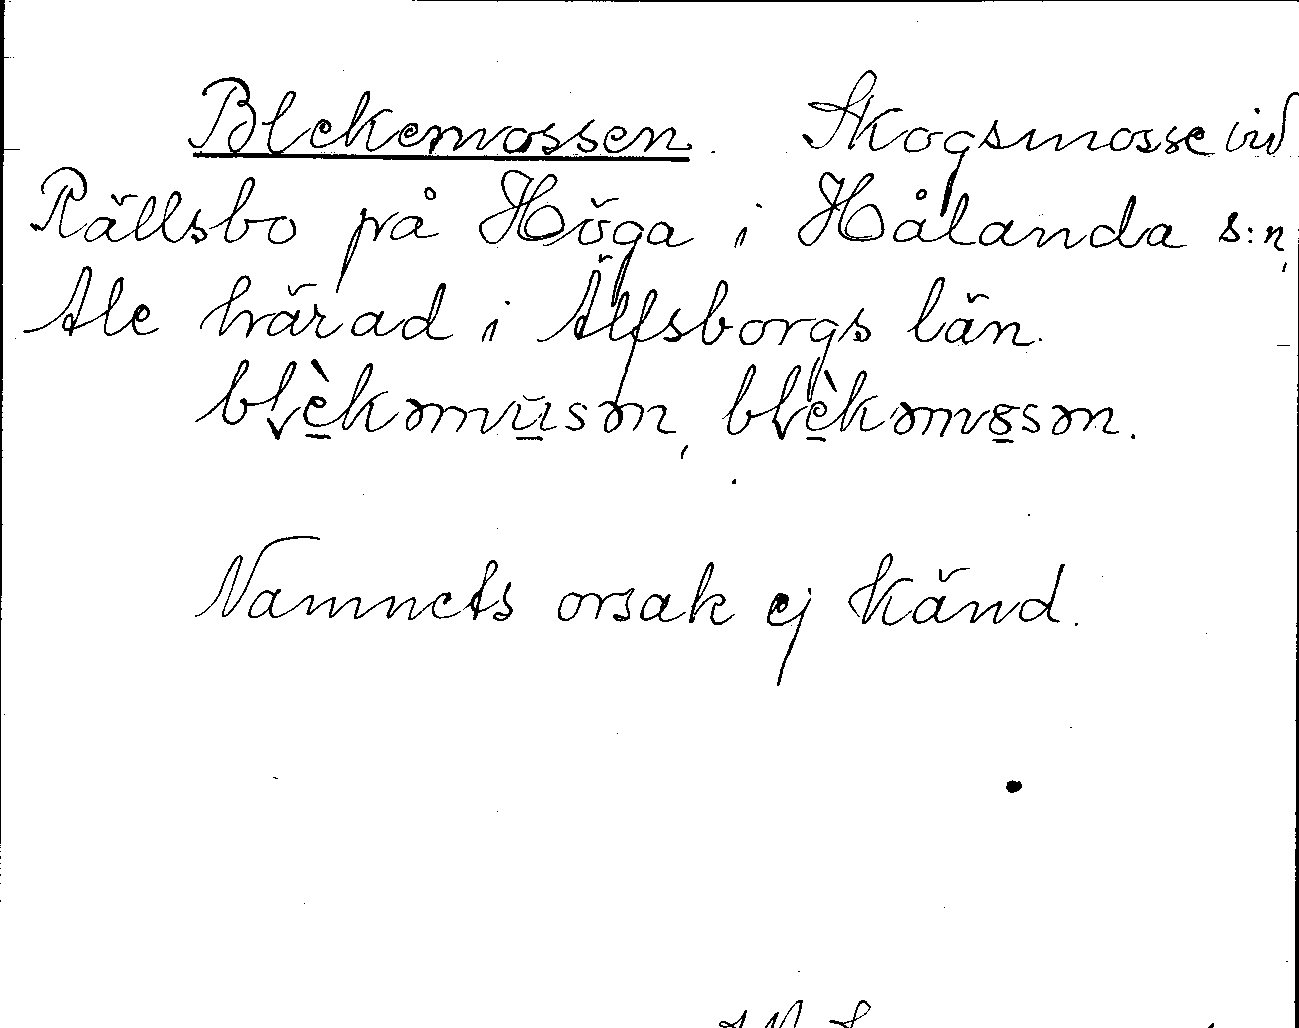 Blekemossen. Skogsmosse vid
Rällsbo på Höga i Hålanda s:n,
Ale härad i Älfsborgs län.
blèkəmusən, blèkəmɞsən.
Namnets orsak ej känd.